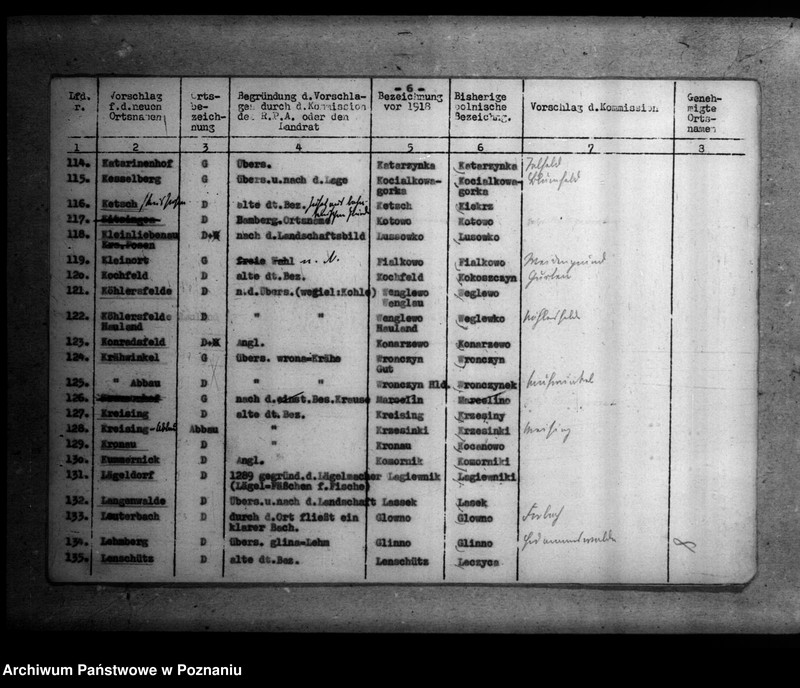 - 6 -
Lfd. Vorschlag Orts- Begründung d.Vorschla- Bezeichnung Bisherige Vorschlag d.Kommission Geneh-
r. f.d.neuen be- gen durch d.Kommission vor 1918 polnische migte
Ortsnamen zeich- des R.P.A. oder den Bezeichg. Orts-
nung Landrat namen
1 2 3 4 5 6 7 8
114. Katarinenhof G Übers. Katarzynka Katarzynka
115. Kesselberg G übers.u.nach d.Lage Kocialkowa- Kocialkowa- Blumfeld
gorka gorka
116. Ketsch D alte dt.Bez. Ketsch Kiekrz
117. D Bamberg.Ortsname Kotowo Kotowo
118. Kleinliebenau D+ nach d.Landschaftsbild Lussowko Lusowko
Krs.Posen
119. Kleinort G freie Wahl u. N. Fialkowo Fialkowo
120. Kochfeld D alte dt.Bez. Kochfeld Kokoszczyn Gurten
121. Köhlersfelde D n.d.Übers.(wegiel:Kohle) Wenglewo Weglewo
Wenglau
122. Köhlersfelde D " " Wenglewo Weglewko
Hauland Hauland
123. Konradsfeld D+ Angl. Konarzewo Konarzewo
124. Krähwinkel G übers. wrona=Krähe Wronczyn Wronczyn
Gut
125. " Abbau D " " Wronczyn Hld. Wronczynek
126. G nach d.einst.Bes.Krause Marcelin Marcelino
127. Kreising D alte dt.Bez. Kreising Krzesiny
128. Kreising-Abbau Abbau " Krzesinki Krzesinki
129. Kronau D " Kronau Kocanowo
130. Kummernick D Angl. Komornik Komorniki
131. Lägeldorf D 1289 gegründ.d.Lägelmacher Lagiewnik Lagiewniki
(Lägel=Fäßchen f.Fische)
132. Langenwalde D Übers.u.nach d.Landschaft Lassek Lasek
133. Lauterbach D durch d.Ort fließt ein Glowno Glowno
klarer Bach.
134. Lehmberg D übers. glina=Lehm Glinno Glinno
135. Lenschütz D alte dt.Bez. Lenschütz Leczyca
Archiwum Państwowe w Poznaniu